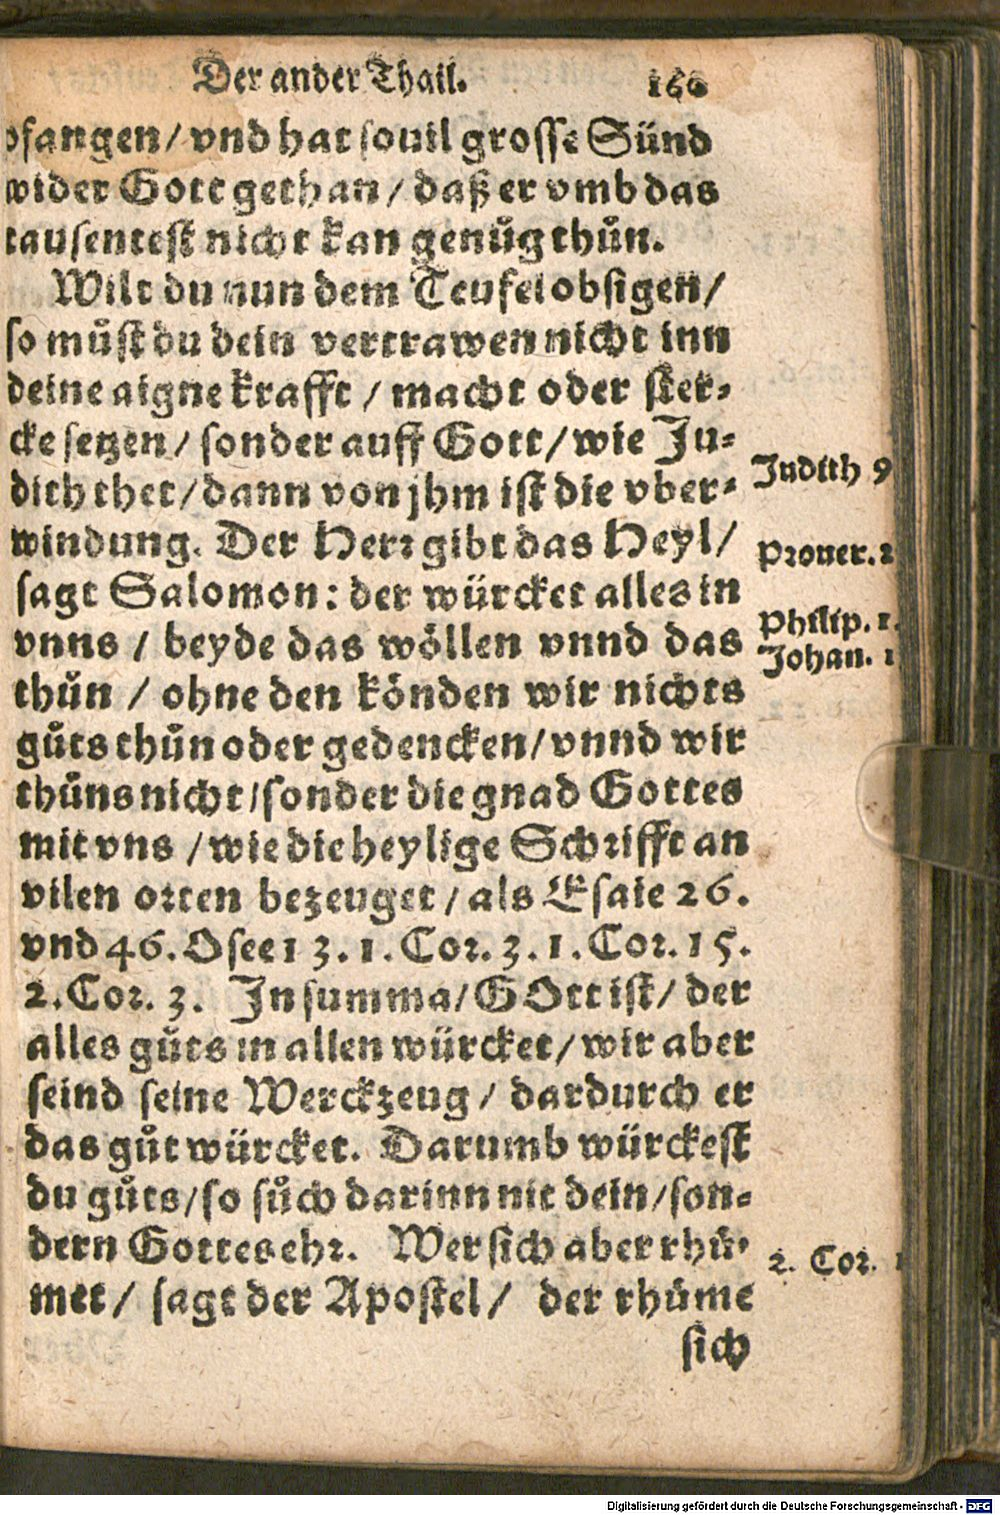 Der ander Thail. 160
pfangen/ vnd hat souil grosse Sünd
wider Gott gethan/ daß er vmb das
tausentest nicht kan genůg thůn.
Wilt du nun dem Teufel obsigen/
so můst du dein vertrawen nicht inn
deine aigne krafft / macht oder ster-
cke setzen/ sonder auff Gott/ wie Ju-
dith thet/ dann von jhm ist die vber-
windung. Der Herr gibt das Heyl/
sagt Salomon: der würcket alles in
vnns / beyde das wöllen vnnd das
thůn / ohne den könden wir nichts
gůts thůn oder gedencken/ vnnd wir
thůns nicht/ sonder die gnad Gottes
mit vns / wie die heylige Schrifft an
vilen orten bezeuget / als Esaie 26.
vnd 46. Osee 13. 1. Cor. 3. 1. Cor. 15.
2. Cor. 3. In summa/ GOtt ist/ der
alles gůts in allen würcket/ wir aber
seind seine Werckzeug / dardurch er
das gůt würcket. Darumb würckest
du gůts/ so sůch darinn nit dein/ son-
dern Gottes ehr. Wer sich aber rhů-
met/ sagt der Apostel/ der rhůme
sich
Judith 9
Prouer. 2
Philip. 1.
Johan. 1
2. Cor. 1
Digitalisierung gefördert durch die Deutsche Forschungsgemeinschaft - DFG